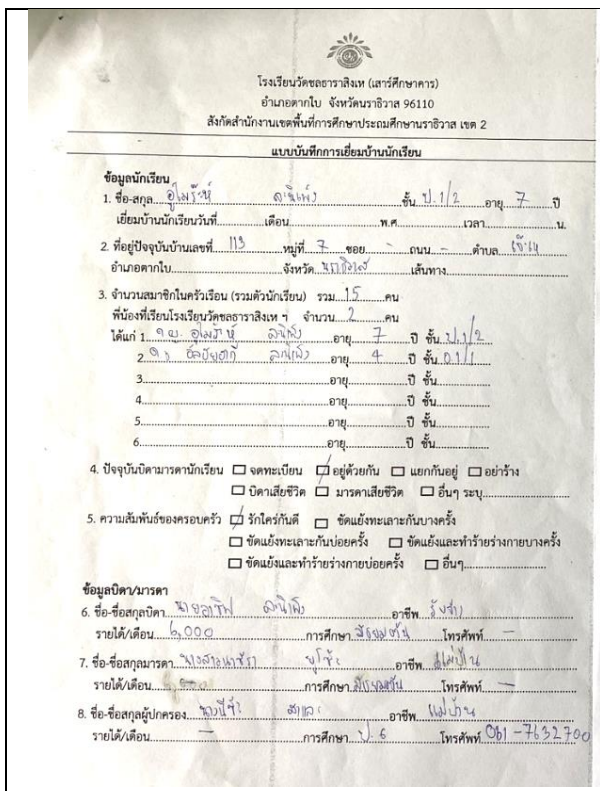 โรงเรียนวัดชลธาราสิงเห (เสาร์ศึกษาคาร)
อำเภอตากใบ จังหวัดนราธิวาส 96110
สังกัดสำนักงานเขตพื้นที่การศึกษาประถมศึกษานราธิวาส เขต 2
แบบบันทึกการเยี่ยมบ้านนักเรียน
ข้อมูลนักเรียน
1. ชื่อ-สกุล อูไมร๊ะห์ ชั้น ป.1/2 อายุ 7 ปี
เยี่ยมบ้านนักเรียนวันที่ เดือน พ.ศ. เวลา น.
2. ที่อยู่ปัจจุบันบ้านเลขที่ 113 หมู่ที่ 7 ซอย - ถนน - ตำบล
อำเภอตากใบ จังหวัด นราธิวาส เส้นทาง
3. จำนวนสมาชิกในครัวเรือน (รวมตัวนักเรียน) รวม 15 คน
พี่น้องที่เรียนโรงเรียนวัดชลธาราสิงเห ฯ จำนวน 2 คน
ได้แก่ 1. ด.ญ. อูไมร๊ะห์ อายุ 7 ปี ชั้น ป.1/2
2. อายุ 4 ปี ชั้น อ.1/1
3. อายุ ปี ชั้น
4. อายุ ปี ชั้น
5. อายุ ปี ชั้น
6. อายุ ปี ชั้น
4. ปัจจุบันบิดามารดานักเรียน จดทะเบียน อยู่ด้วยกัน แยกกันอยู่ อย่าร้าง
บิดาเสียชีวิต มารดาเสียชีวิต อื่นๆ ระบุ
5. ความสัมพันธ์ของครอบครัว รักใคร่กันดี ขัดแย้งทะเลาะกันบางครั้ง
ขัดแย้งทะเลาะกันบ่อยครั้ง ขัดแย้งและทำร้ายร่างกายบางครั้ง
ขัดแย้งและทำร้ายร่างกายบ่อยครั้ง อื่นๆ
ข้อมูลบิดา/มารดา
6. ชื่อ-ชื่อสกุลบิดา นายอาซิฟ อาชีพ รับจ้าง
รายได้/เดือน 6,000 การศึกษา มัธยมต้น โทรศัพท์ -
7. ชื่อ-ชื่อสกุลมารดา ยูโซ๊ะ อาชีพ แม่บ้าน
รายได้/เดือน การศึกษา มัธยมต้น โทรศัพท์ -
8. ชื่อ-ชื่อสกุลผู้ปกครอง อาชีพ แม่บ้าน
รายได้/เดือน - การศึกษา ป.6 โทรศัพท์ 061-7632700